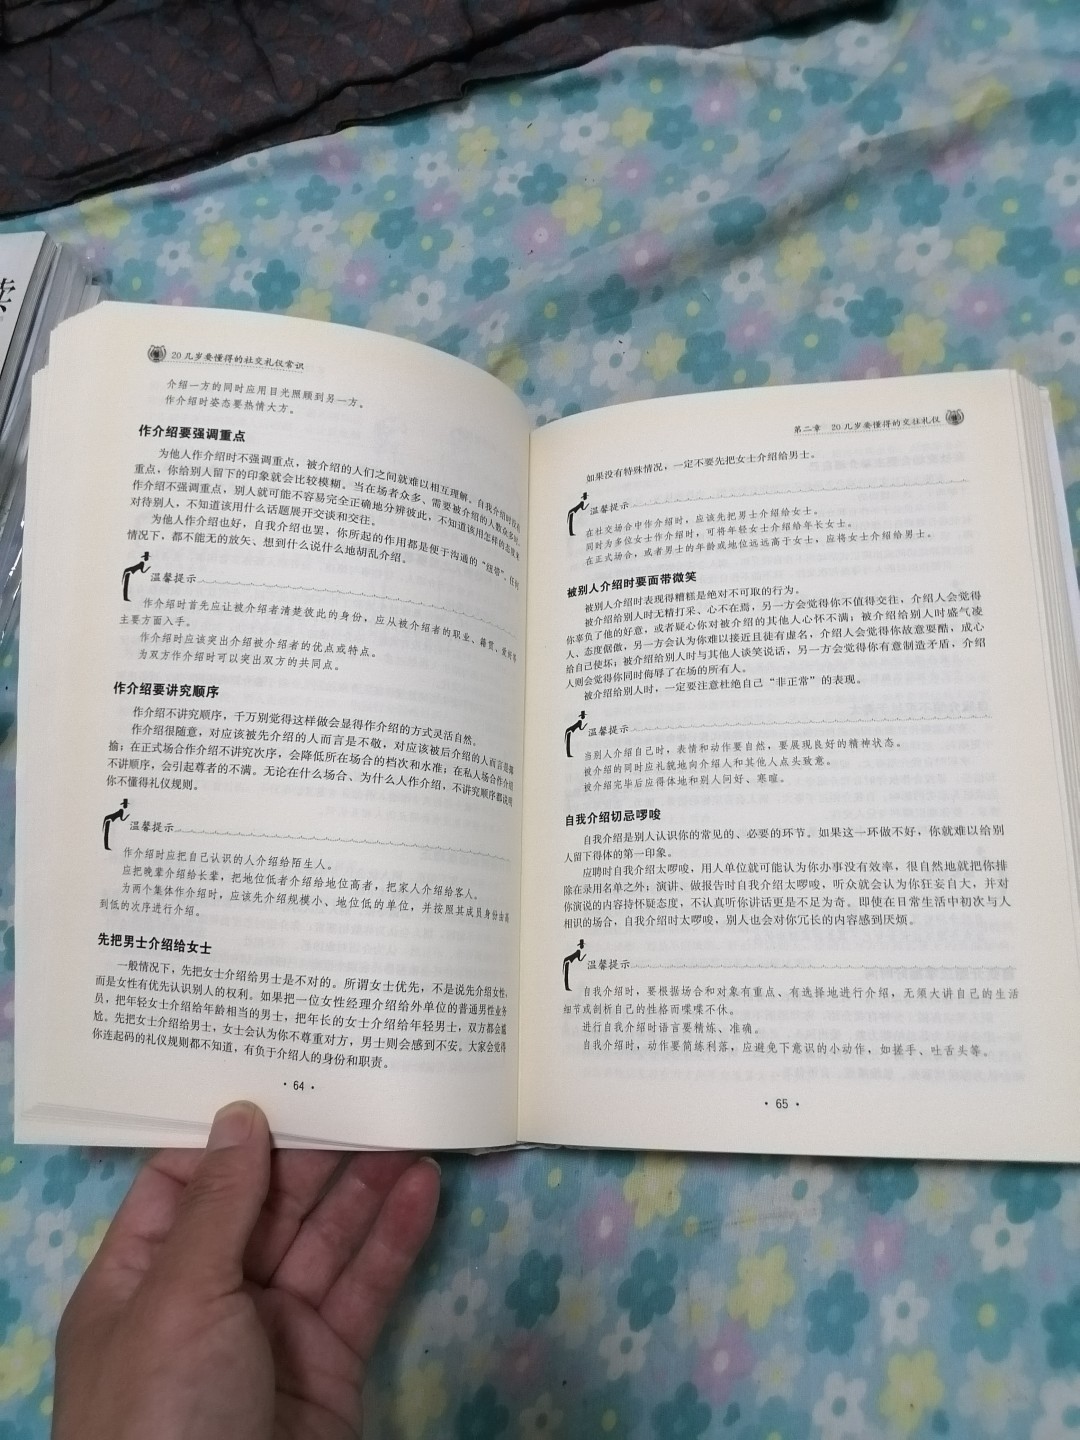 20几岁要懂得的社交礼仪常识
介绍一方的同时应用目光照顾到另一方。
作介绍时姿态要热情大方。
作介绍要强调重点
为他人作介绍时不强调重点，被介绍的人们之间就难以相互理解，自我介绍时没有
重点，你给别人留下的印象就会比较模糊。当在场者众多、需要被介绍的人数众多时，
作介绍不强调重点，别人就可能不容易完全正确地分辨彼此，不知道该用怎样的态度来
对待别人，不知道该用什么话题展开交谈和交往。
为他人作介绍也好，自我介绍也罢，你所起的作用都是便于沟通的“纽带”，任何
情况下，都不能无的放矢、想到什么说什么地胡乱介绍。
温馨提示
作介绍时首先应让被介绍者清楚彼此的身份，应从被介绍者的职业、籍贯、
主要方面入手。
作介绍时应该突出介绍被介绍者的优点或特点。
为双方作介绍时可以突出双方的共同点。
作介绍要讲究顺序
作介绍不讲究顺序，千万别觉得这样做会显得作介绍的方式灵活自然。
作介绍很随意，对应该被先介绍的人而言是不敬，对应该被后介绍的人而言是
揄；在正式场合作介绍不讲究次序，会降低所在场合的档次和水准；在私人场合作介绍
不讲顺序，会引起尊者的不满。无论在什么场合、为什么人作介绍，不讲究顺序都说明
你不懂得礼仪规则。
温馨提示
作介绍时应把自己认识的人介绍给陌生人。
应把晚辈介绍给长辈，把地位低者介绍给地位高者，把家人介绍给客人。
为两个集体作介绍时，应该先介绍规模小、地位低的单位，并按照其成员身份由高
到低的次序进行介绍。
先把男士介绍给女士
一般情况下，先把女士介绍给男士是不对的。所谓女士优先，不是说先介绍女性，
而是女性有优先认识别人的权利。如果把一位女性经理介绍给外单位的普通男性业务
员，把年轻女士介绍给年龄相当的男士，把年长的女士介绍给年轻男士，双方都会尴
尬。先把女士介绍给男士，女士会认为你不尊重对方，男士则会感到不安。大家会觉得
你连起码的礼仪规则都不知道，有负于介绍人的身份和职责。
·64·
第二章 20几岁要懂得的交往礼仪
如果没有特殊情况，一定不要先把女士介绍给男士。
温馨提示
在社交场合中作介绍时，应该先把男士介绍给女士。
同时为多位女士作介绍时，可将年轻女士介绍给年长女士。
在正式场合，或者男士的年龄或地位远远高于女士，应将女士介绍给男士。
被别人介绍时要面带微笑
被别人介绍时表现得糟糕是绝对不可取的行为。
被介绍给别人时无精打采、心不在焉，另一方会觉得你不值得交往，介绍人会觉得
你辜负了他的好意，或者疑心你对被介绍的其他人心怀不满；被介绍给别人时盛气凌
人、态度倨傲，另一方会认为你难以接近且徒有虚名，介绍人会觉得你故意耍酷，成心
给自己使坏；被介绍给别人时与其他人谈笑说话，另一方会觉得你有意制造矛盾，介绍
人则会觉得你同时侮辱了在场的所有人。
被介绍给别人时，一定要注意杜绝自己“非正常”的表现。
温馨提示
当别人介绍自己时，表情和动作要自然，要展现良好的精神状态。
被介绍的同时应礼貌地向介绍人和其他人点头致意。
被介绍完毕后应得体地和别人问好、寒暄。
自我介绍切忌啰唆
自我介绍是别人认识你的常见的、必要的环节。如果这一环做不好，你就难以给别
人留下得体的第一印象。
应聘时自我介绍太啰唆，用人单位就可能认为你办事没有效率，很自然地就把你排
除在录用名单之外；演讲、做报告时自我介绍太啰唆，听众就会认为你狂妄自大，并对
你演说的内容持怀疑态度，不认真听你讲话更是不足为奇。即使在日常生活中初次与人
相识的场合，自我介绍时太啰唆，别人也会对你冗长的内容感到厌烦。
温馨提示
自我介绍时，要根据场合和对象有重点、有选择地进行介绍，无须大讲自己的生活
细节或剖析自己的性格而喋喋不休。
进行自我介绍时语言要精炼、准确。
自我介绍时，动作要简练利落，应避免下意识的小动作，如搓手、吐舌头等。
·65·